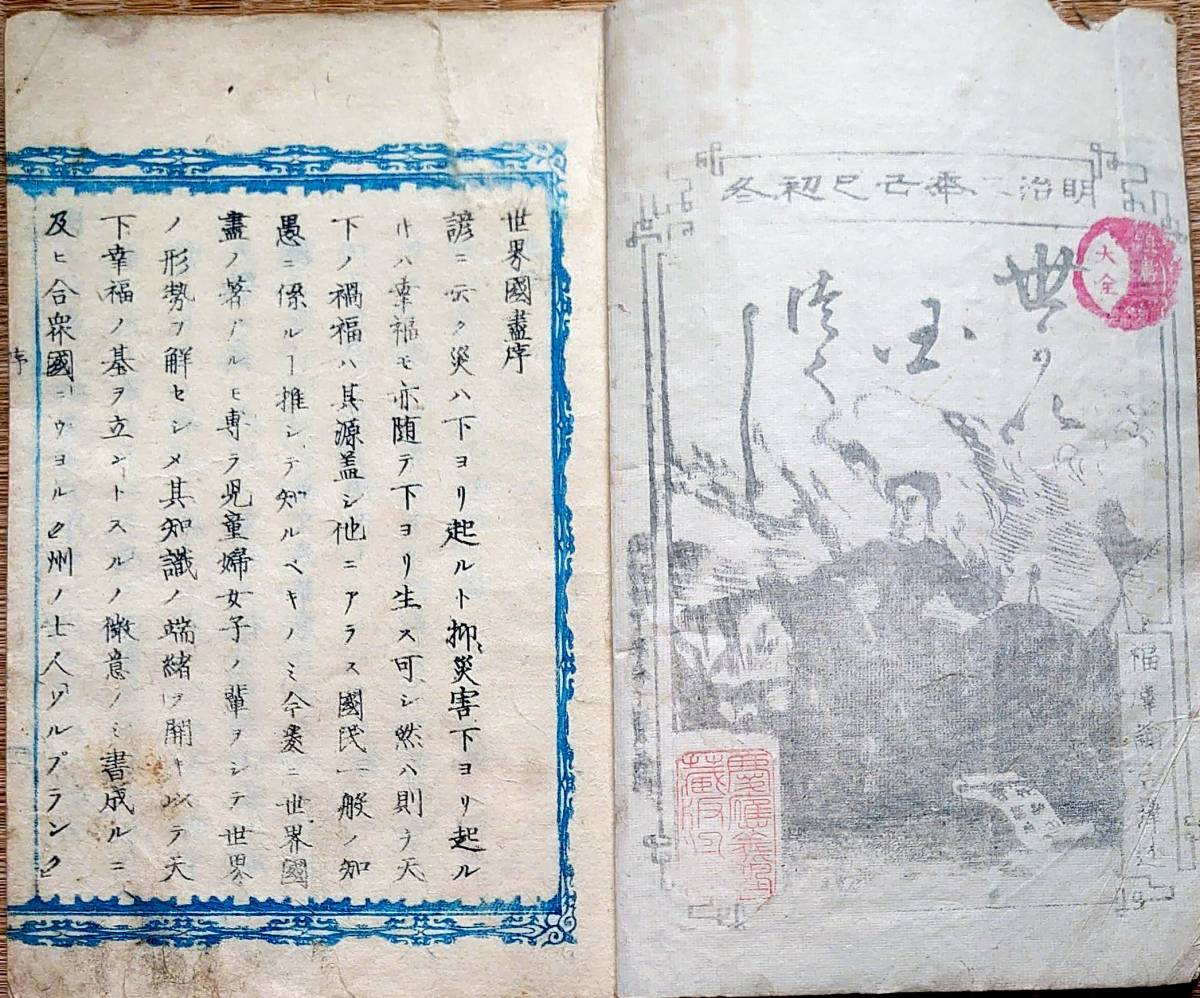 明治二年己巳初冬
世界
国
つくし
大全
福澤諭吉譯述
慶應義塾
蔵版之印
世界國盡序
諺ニ云ク災ハ下ヨリ起ルト抑〻災害下ヨリ起ル
片ハ幸福モ亦随テ下ヨリ生ス可シ然ハ則チ天
下ノ禍福ハ其源盖シ他ニアラス國民一般ノ知
愚ニ係ルヿ推シテ知ルベキノミ今爰ニ世界國
盡ノ著アルモ専ラ児童婦女子ノ輩ヲシテ世界
ノ形勢ヲ解セシメ其知識ノ端緒ヲ開キ以テ天
下幸福ノ基ヲ立ントスルノ微意ノミ書成ルニ
及ヒ合衆國ニウヨルク州ノ士人ヴルプランク
序